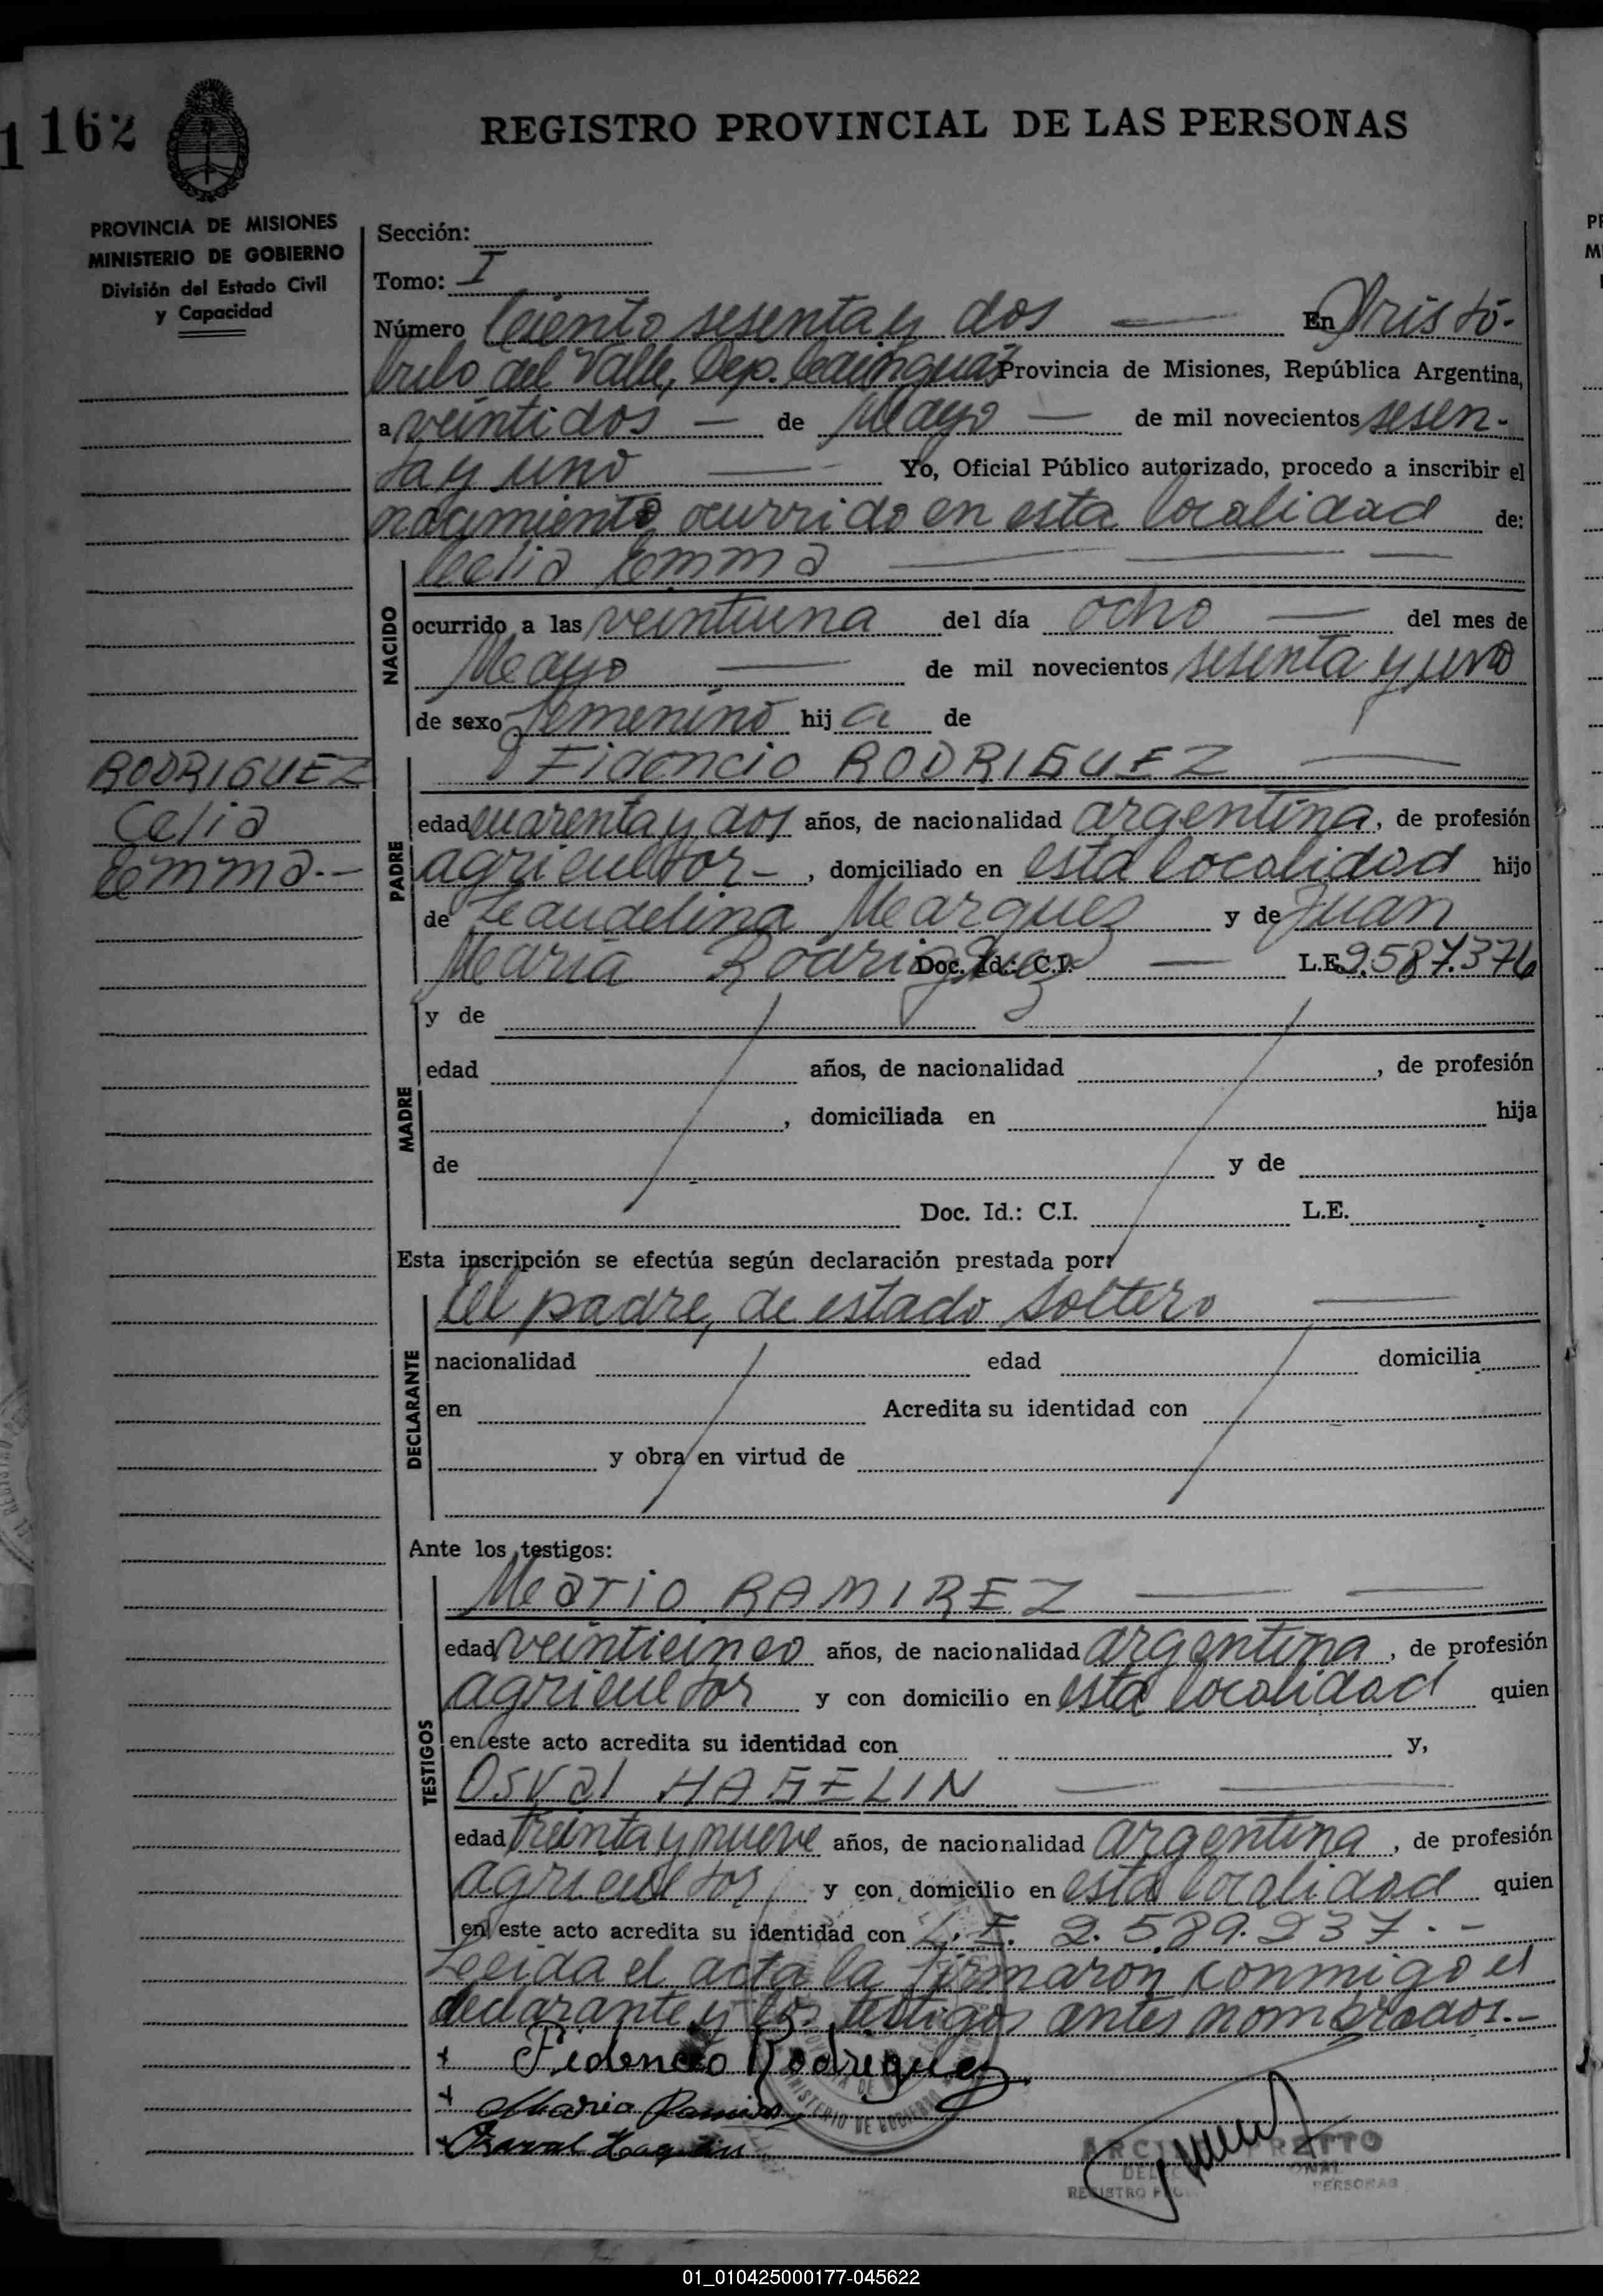 1
162
REGISTRO PROVINCIAL DE LAS PERSONAS
PROVINCIA DE MISIONES
MINISTERIO DE GOBIERNO
División del Estado Civil
y Capacidad
Sección:
Tomo: I
Número Ciento sesenta y dos — En Aristó-
bulo del Valle, Dep. Cainguás Provincia de Misiones, República Argentina,
a veintidos — de Mayo — de mil novecientos sesen-
ta y uno — Yo, Oficial Público autorizado, procedo a inscribir el
nacimiento ocurrido en esta localidad de:
NACIDO
Celia Emma — — —
ocurrido a las veintiuna del día ocho — del mes de
Mayo — de mil novecientos sesenta y uno
de sexo femenino hija de
RODRIGUEZ
Celia
Emma.-
PADRE
Fidencio RODRIGUEZ —
edad cuarenta y dos años, de nacionalidad argentina, de profesión
agricultor-, domiciliado en esta localidad hijo
de Leaudelina Marquez y de Juan
María Rodriguez Doc. Id.: C.I. — L.E. 9.587.376
MADRE
y de
edad años, de nacionalidad , de profesión
, domiciliada en hija
de y de
Doc. Id.: C.I. L.E.
Esta inscripción se efectúa según declaración prestada por:
DECLARANTE
El padre, de estado soltero —
nacionalidad edad domicilia
en Acredita su identidad con
y obra en virtud de
Ante los testigos:
TESTIGOS
Mario RAMIREZ — —
edad veinticinco años, de nacionalidad argentina, de profesión
agricultor y con domicilio en esta localidad quien
en este acto acredita su identidad con y,
Osval HAGELIN — —
edad treinta y nueve años, de nacionalidad argentina, de profesión
agricultor y con domicilio en esta localidad quien
en este acto acredita su identidad con L.E. 2.589.237.-
Leída el acta la firmaron conmigo el
declarante y los testigos antes nombrados.-
Fidencio Rodriguez
Mario Ramires
MINISTERIO DE GOBIERNO
PERSONAS
01_010425000177-045622